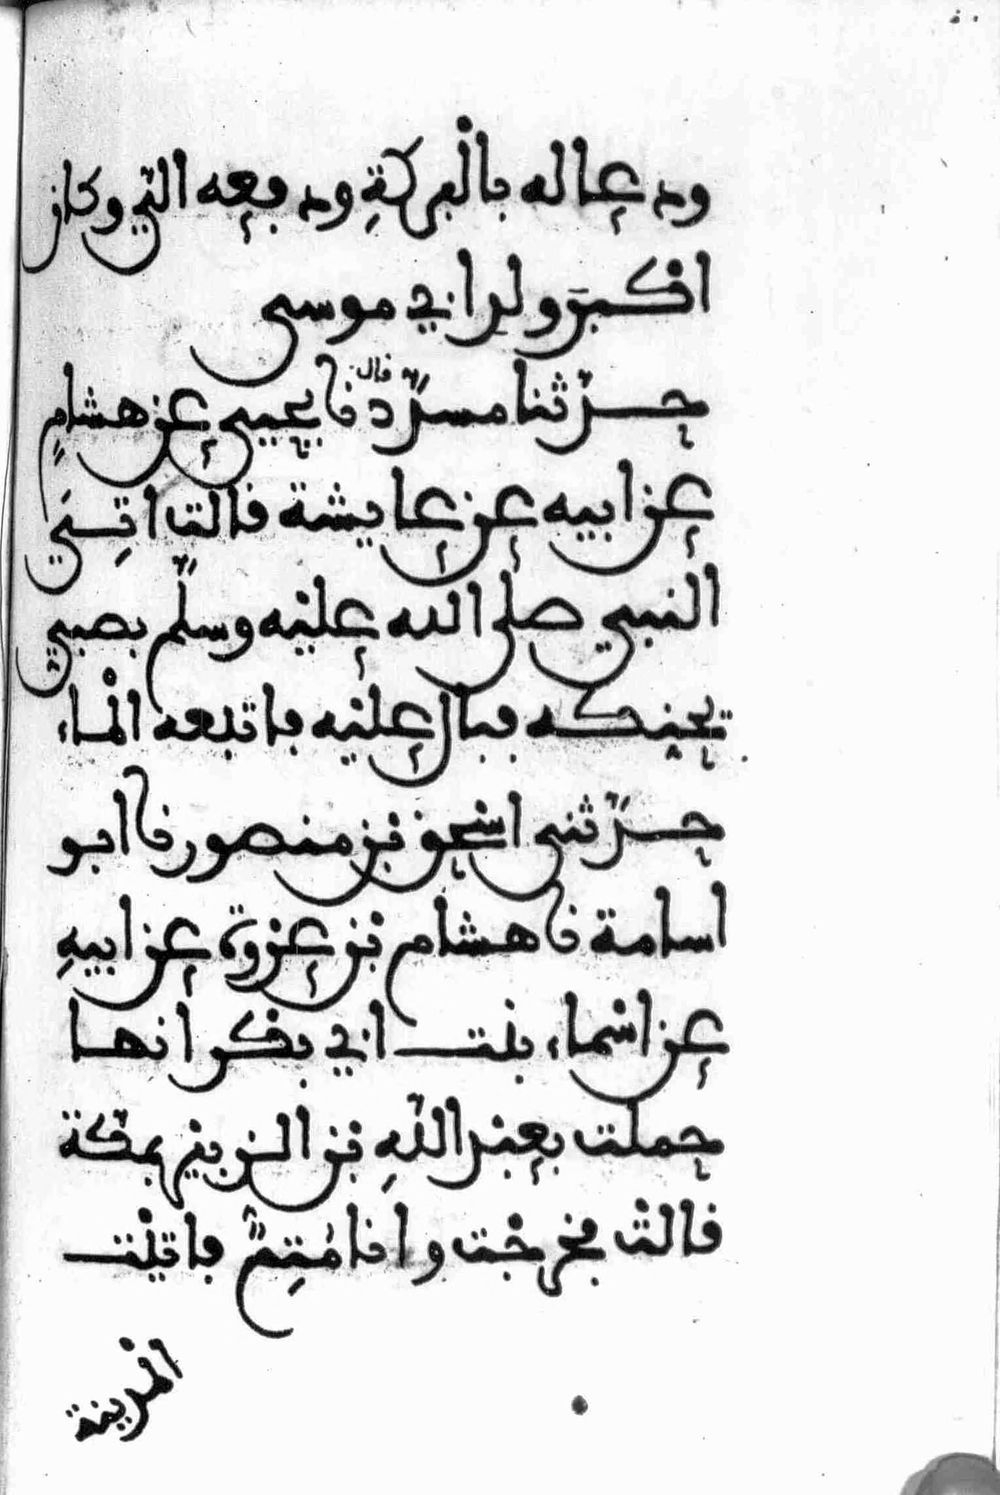 ودعا له بالبركة ودفعه الي وكان
اكبر ولد ابي موسى
حدثنا مسدد قال نا يحيى عن هشام
عن ابيه عن عايشة قالت اتي
النبي صلى الله عليه وسلم بصبي
يحنكه فبال عليه فاتبعه الماء
حدثني اسحق بن منصور نا ابو
اسامة نا هشام بن عروة عن ابيه
عن اسماء بنت ابي بكر انها
حملت بعبد الله بن الزبير بمكة
قالت فخرجت وانا متم فاتيت
المدينة